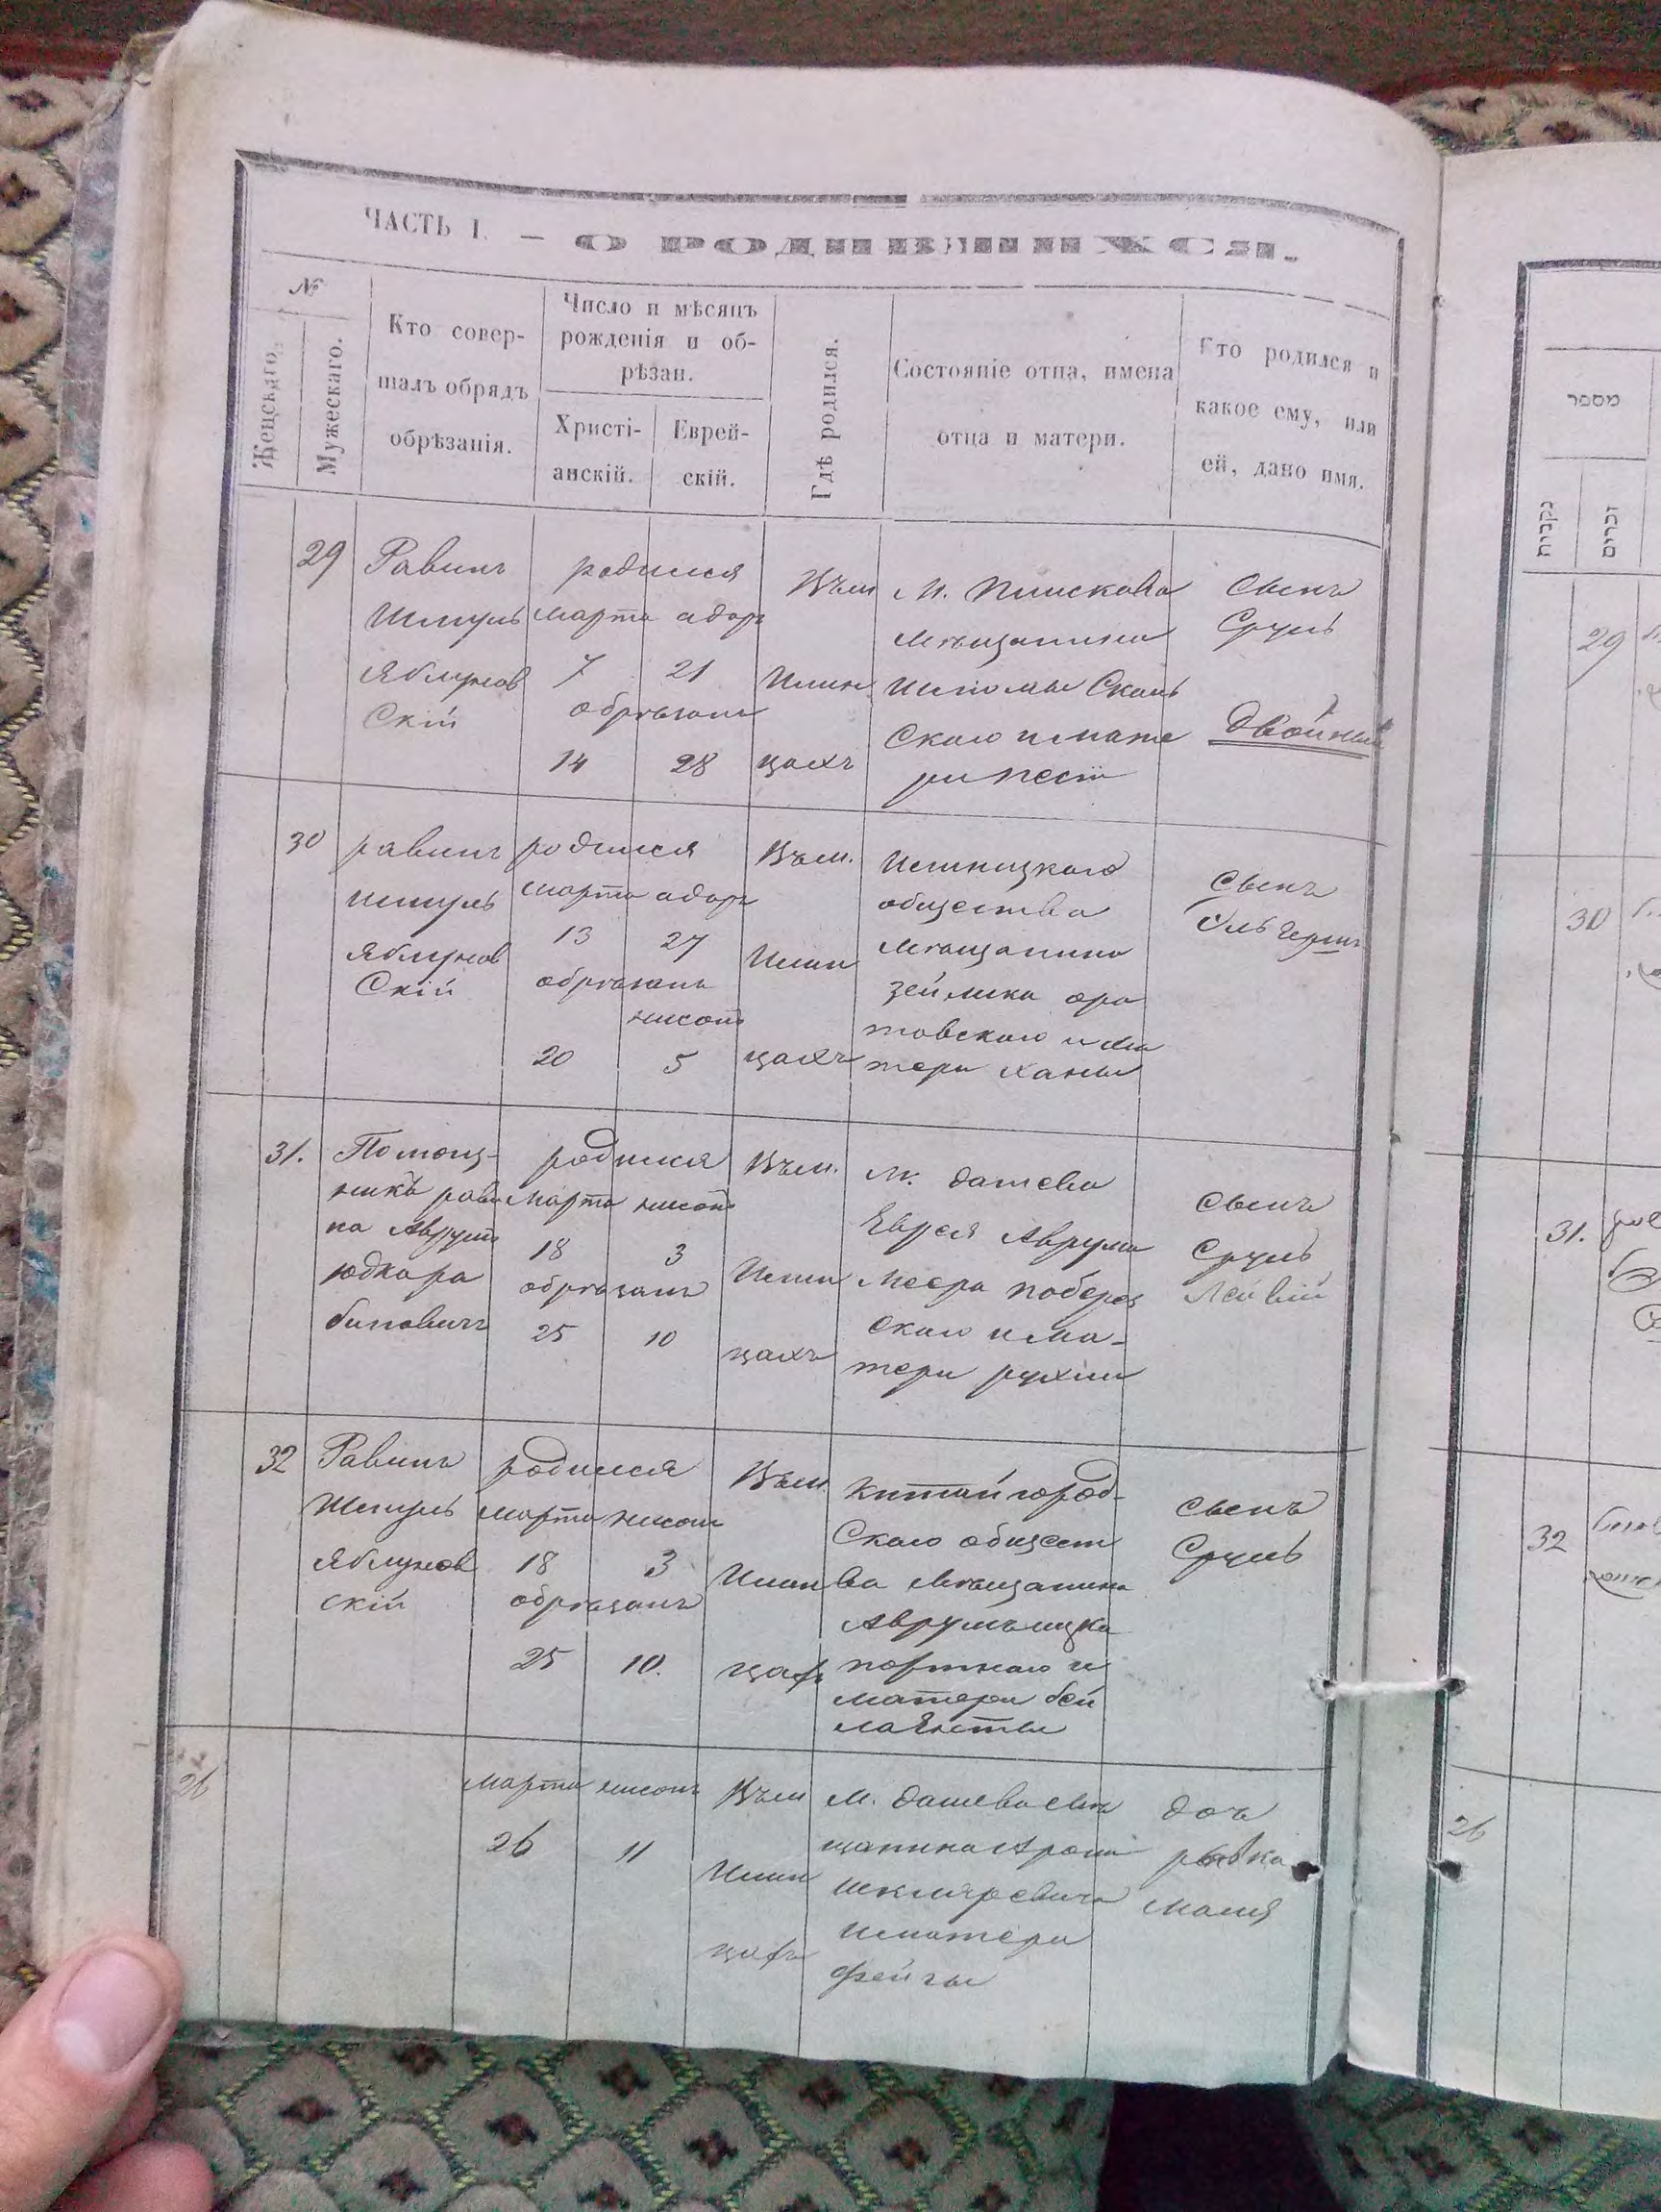 ЧАСТЬ I. — О РОДИВШИХСЯ.
№
Женскаго.
Мужескаго.
Кто совер-
шалъ обрядъ
обрѣзанія.
Число и мѣсяцъ
рожденія и об-
рѣзан.
Христі-
анскій.
Еврей-
скій.
Гдѣ родился.
Состояніе отца, имена
отца и матери.
Кто родился и
какое ему, или
ей, дано имя.
29
Равинъ
Шмуль
Яблунов
Скій
родился
марта адаръ
7 21
обрѣзанъ
14 28
Въ м
Илин
цахъ
М. Пинскова
мѣщанина
Шломы
Скаго и мате
ри Песи
Сынъ
Сруль
Двойный
30
равинъ
шмуль
Яблунов
Скій
родился
марта адаръ
13 27
обрѣзанъ
нисонъ
20 5
Въ м.
Илин
цахъ
Илинцкаго
общества
мѣщанина
Зейлика ора
товскаго и ма
тери ханы
Сынъ
31.
Помощ-
никъ рави
на Аврумъ
юдкара
биновичъ
родился
марта нисонъ
18 3
обрѣзанъ
25 10
Въ м.
Илин
цахъ
м. дашева
Еврея Аврума
Меера поберез
Скаго и ма-
тери рухли
Сынъ
Сруль
Лейвій
32
Равинъ
Шмуль
Яблунов
скій
родился
марта нисонъ
18 3
обрѣзанъ
25 10.
Въ м.
Илин
цахъ
китайгород-
Скаго общест
ва мѣщанина
Аврумъ ицка
портнаго и
матери бей
лы Енты
сынъ
Сруль
26
марта нисонъ
26 11
Въ м
Илин
цахъ
м. дашева мѣ
щанина Арона
шкляревича
и матери
фейги
дочь
рывка
малия
מספר
נקבות
זכרים
29
30
31.
32
26